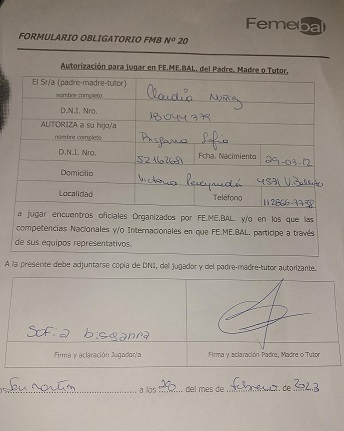 Femebal
FORMULARIO OBLIGATORIO FMB Nº 20
Autorización para jugar en FE.ME.BAL. del Padre, Madre o Tutor.
El Sr/a (padre-madre-tutor) Claudia
nombre completo
D.N.I. Nro.
AUTORIZA a su hijo/a Sofia
nombre completo
D.N.I. Nro. Fcha. Nacimiento 29-03-12
Domicilio Victoria 4531 V.Ballester
Localidad Teléfono
a jugar encuentros oficiales Organizados por FE.ME.BAL. y/o en los que las
competencias Nacionales y/o Internacionales en que FE.ME.BAL. participe a través
de sus equipos representativos.
A la presente debe adjuntarse copia de DNI, del jugador y del padre-madre-tutor autorizante.
Firma y aclaración Jugador/a Firma y aclaración Padre, Madre o Tutor
San Martin a los 28 del mes de febrero de 2023